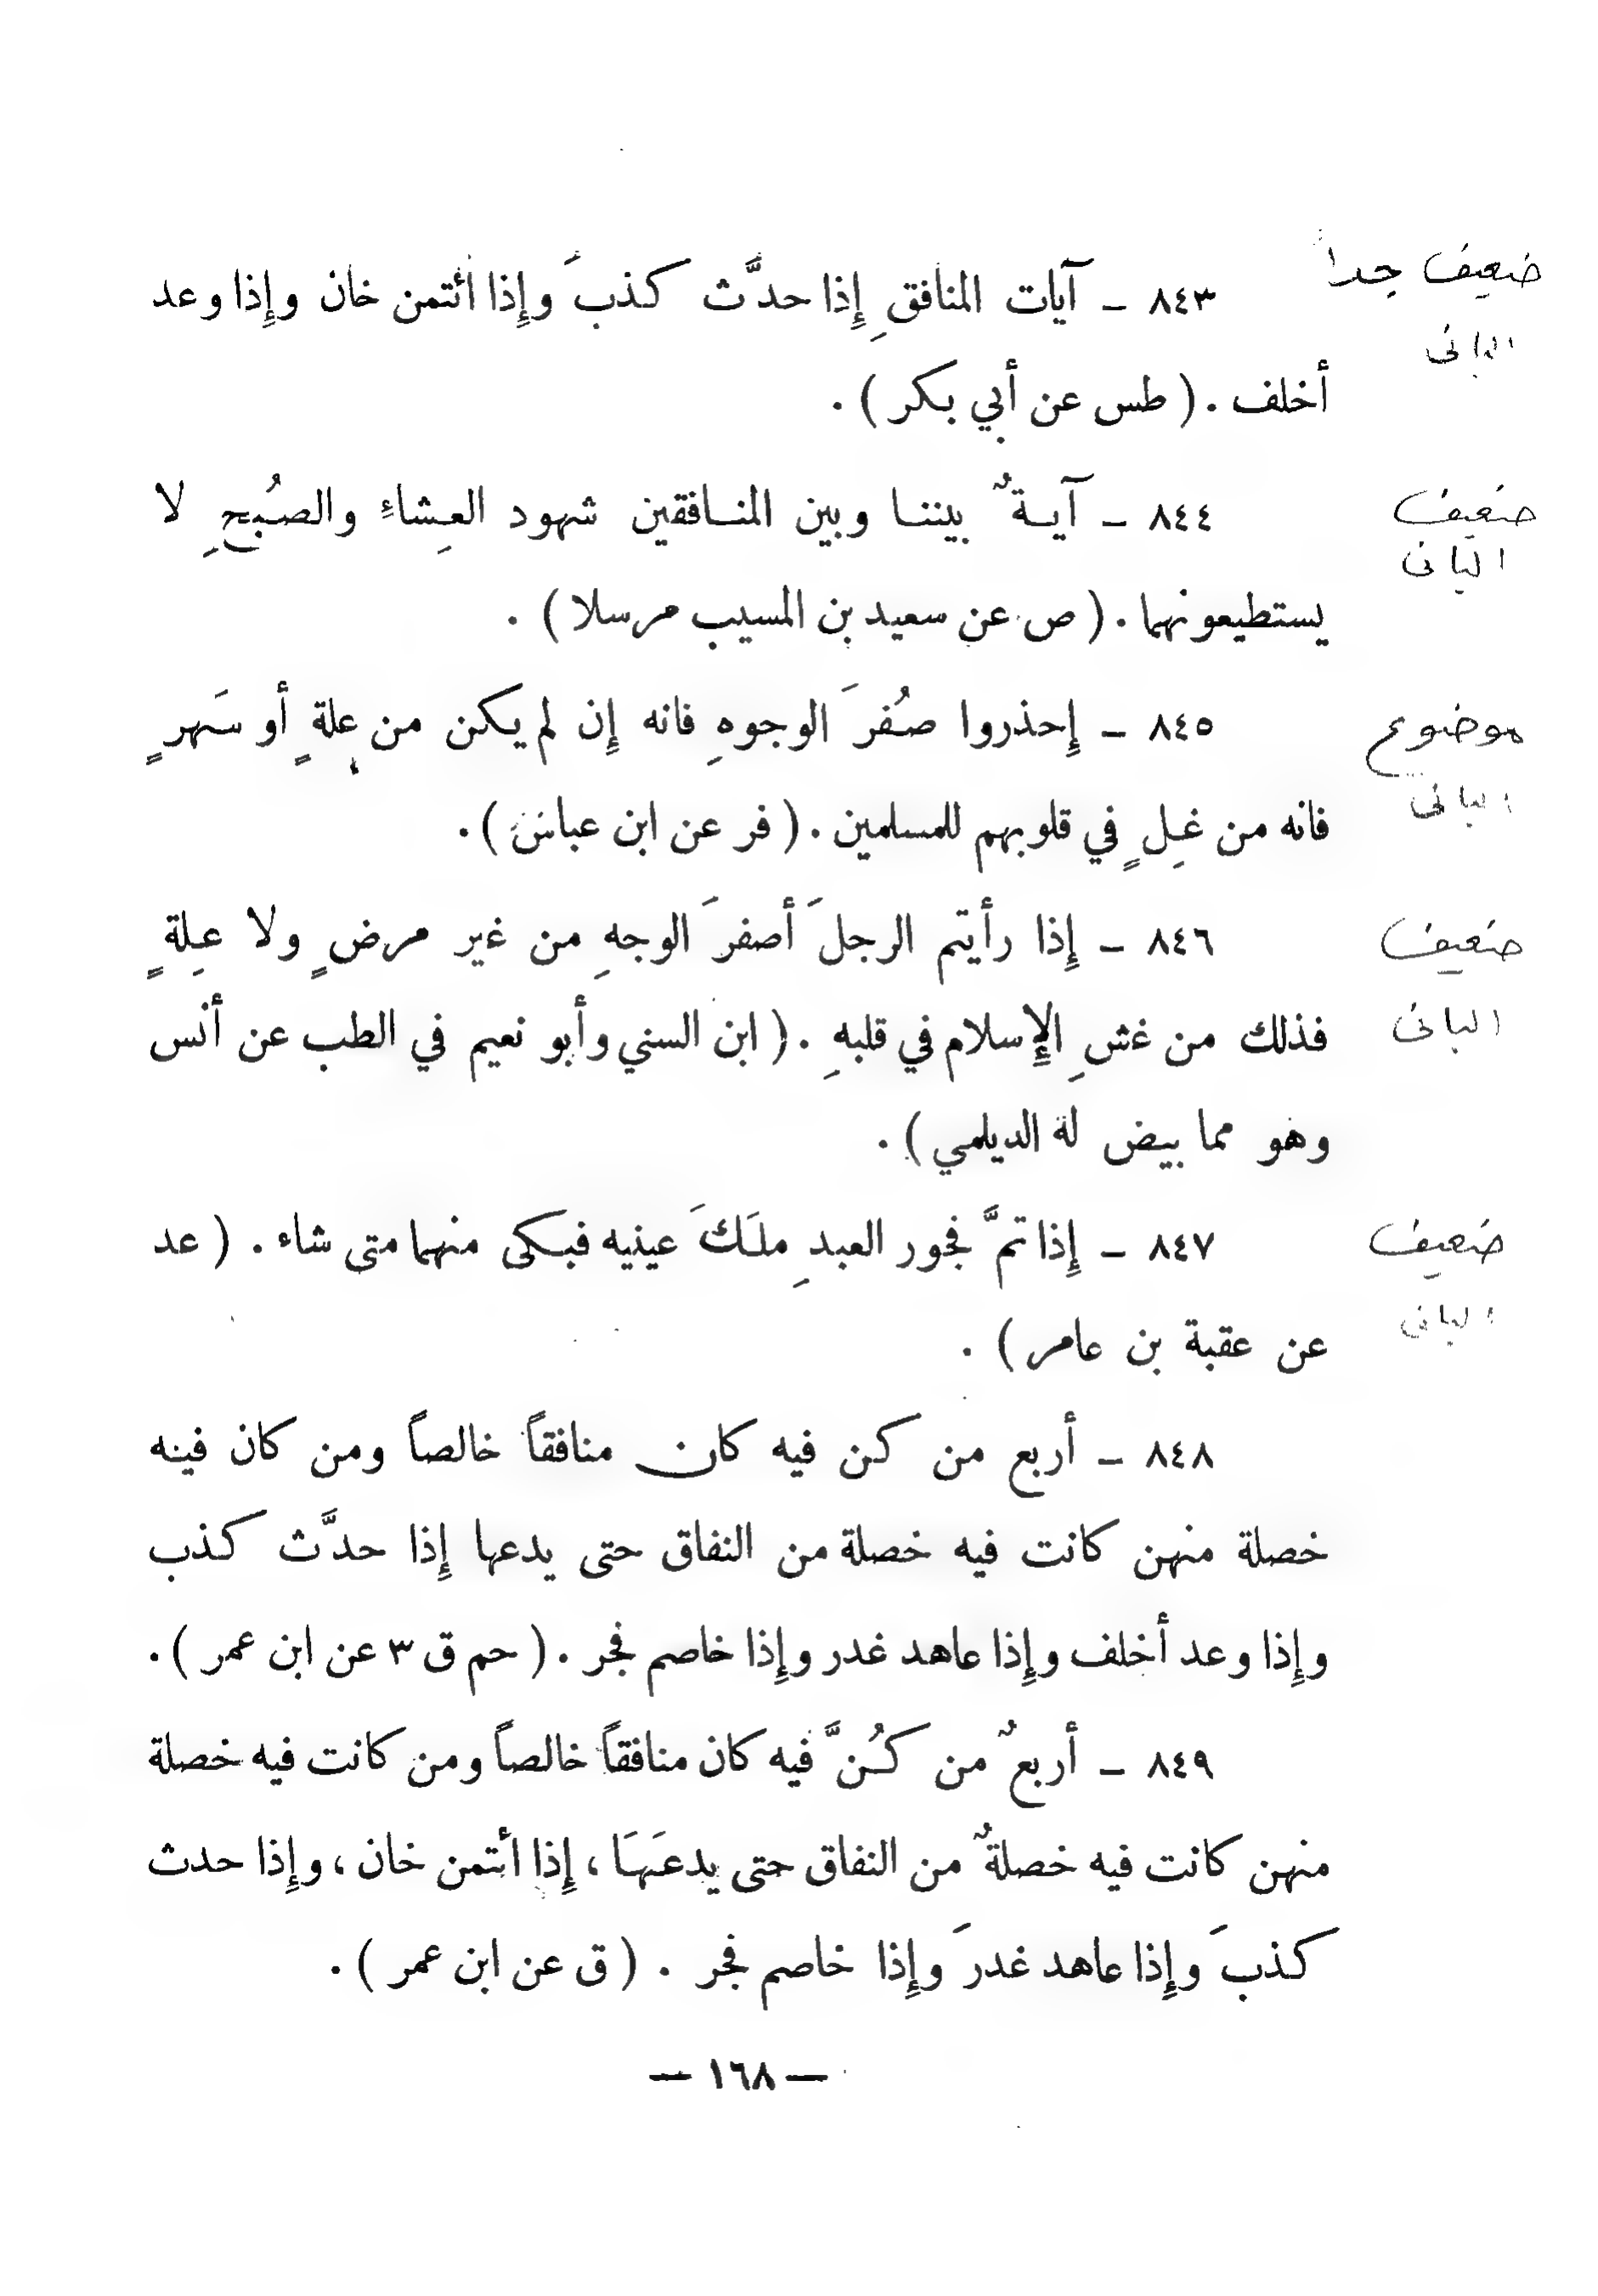 ضعيف جداً
٨٤٣ ـ آيات المنافقِ إِذا حدَّث كذبَ وإِذا ائتمن خان وإِذا وعد
البانى
أخلف . ( طس عن أبي بكر ) .
ضعيف
٨٤٤ ـ آيــةٌ بيننــا وبين المنــافقين شهود العِشاءِ والصُبحِ لا
البانى
يستطيعونهما . ( ص عن سعيد بن المسيب مرسلا ) .
موضوع
٨٤٥ ـ إِحذروا صُفرَ الوجوهِ فانه إِن لم يكن من علةٍ أو سَهرٍ
البانى
فانه من غِلٍ في قلوبهم للمسلمين . ( فر عن ابن عباس ) .
ضعيف
٨٤٦ ـ إِذا رأيتم الرجلَ أصفرَ الوجهِ من غير مرضٍ ولا عِلةٍ
البانى
فذلك من غشِ الإِسلام في قلبهِ . ( ابن السني وأبو نعيم في الطب عن أنس
وهو مما بيض له الديلمي ) .
ضعيف
٨٤٧ ـ إِذا تمَّ فجور العبدِ ملَكَ عينيه فبكى منهما متى شاء . ( عد
البانى
عن عقبة بن عامر ) .
٨٤٨ ـ أربع من كن فيه كان منافقاً خالصاً ومن كان فيه
خصلة منهن كانت فيه خصلة من النفاق حتى يدعها إِذا حدَّث كذب
وإِذا وعد أخلف وإِذا عاهد غدر وإِذا خاصم فجر . ( حم ق ٣ عن ابن عمر ) .
٨٤٩ ـ أربعٌ من كُنَّ فيه كان منافقاً خالصاً ومن كانت فيه خصلة
منهن كانت فيه خصلةٌ من النفاق حتى يدعَهَا ، إِذا أئتمن خان ، وإِذا حدث
كذبَ وإِذا عاهد غدرَ وإِذا خاصم فجر . ( ق عن ابن عمر ) .
— ١٦٨ —